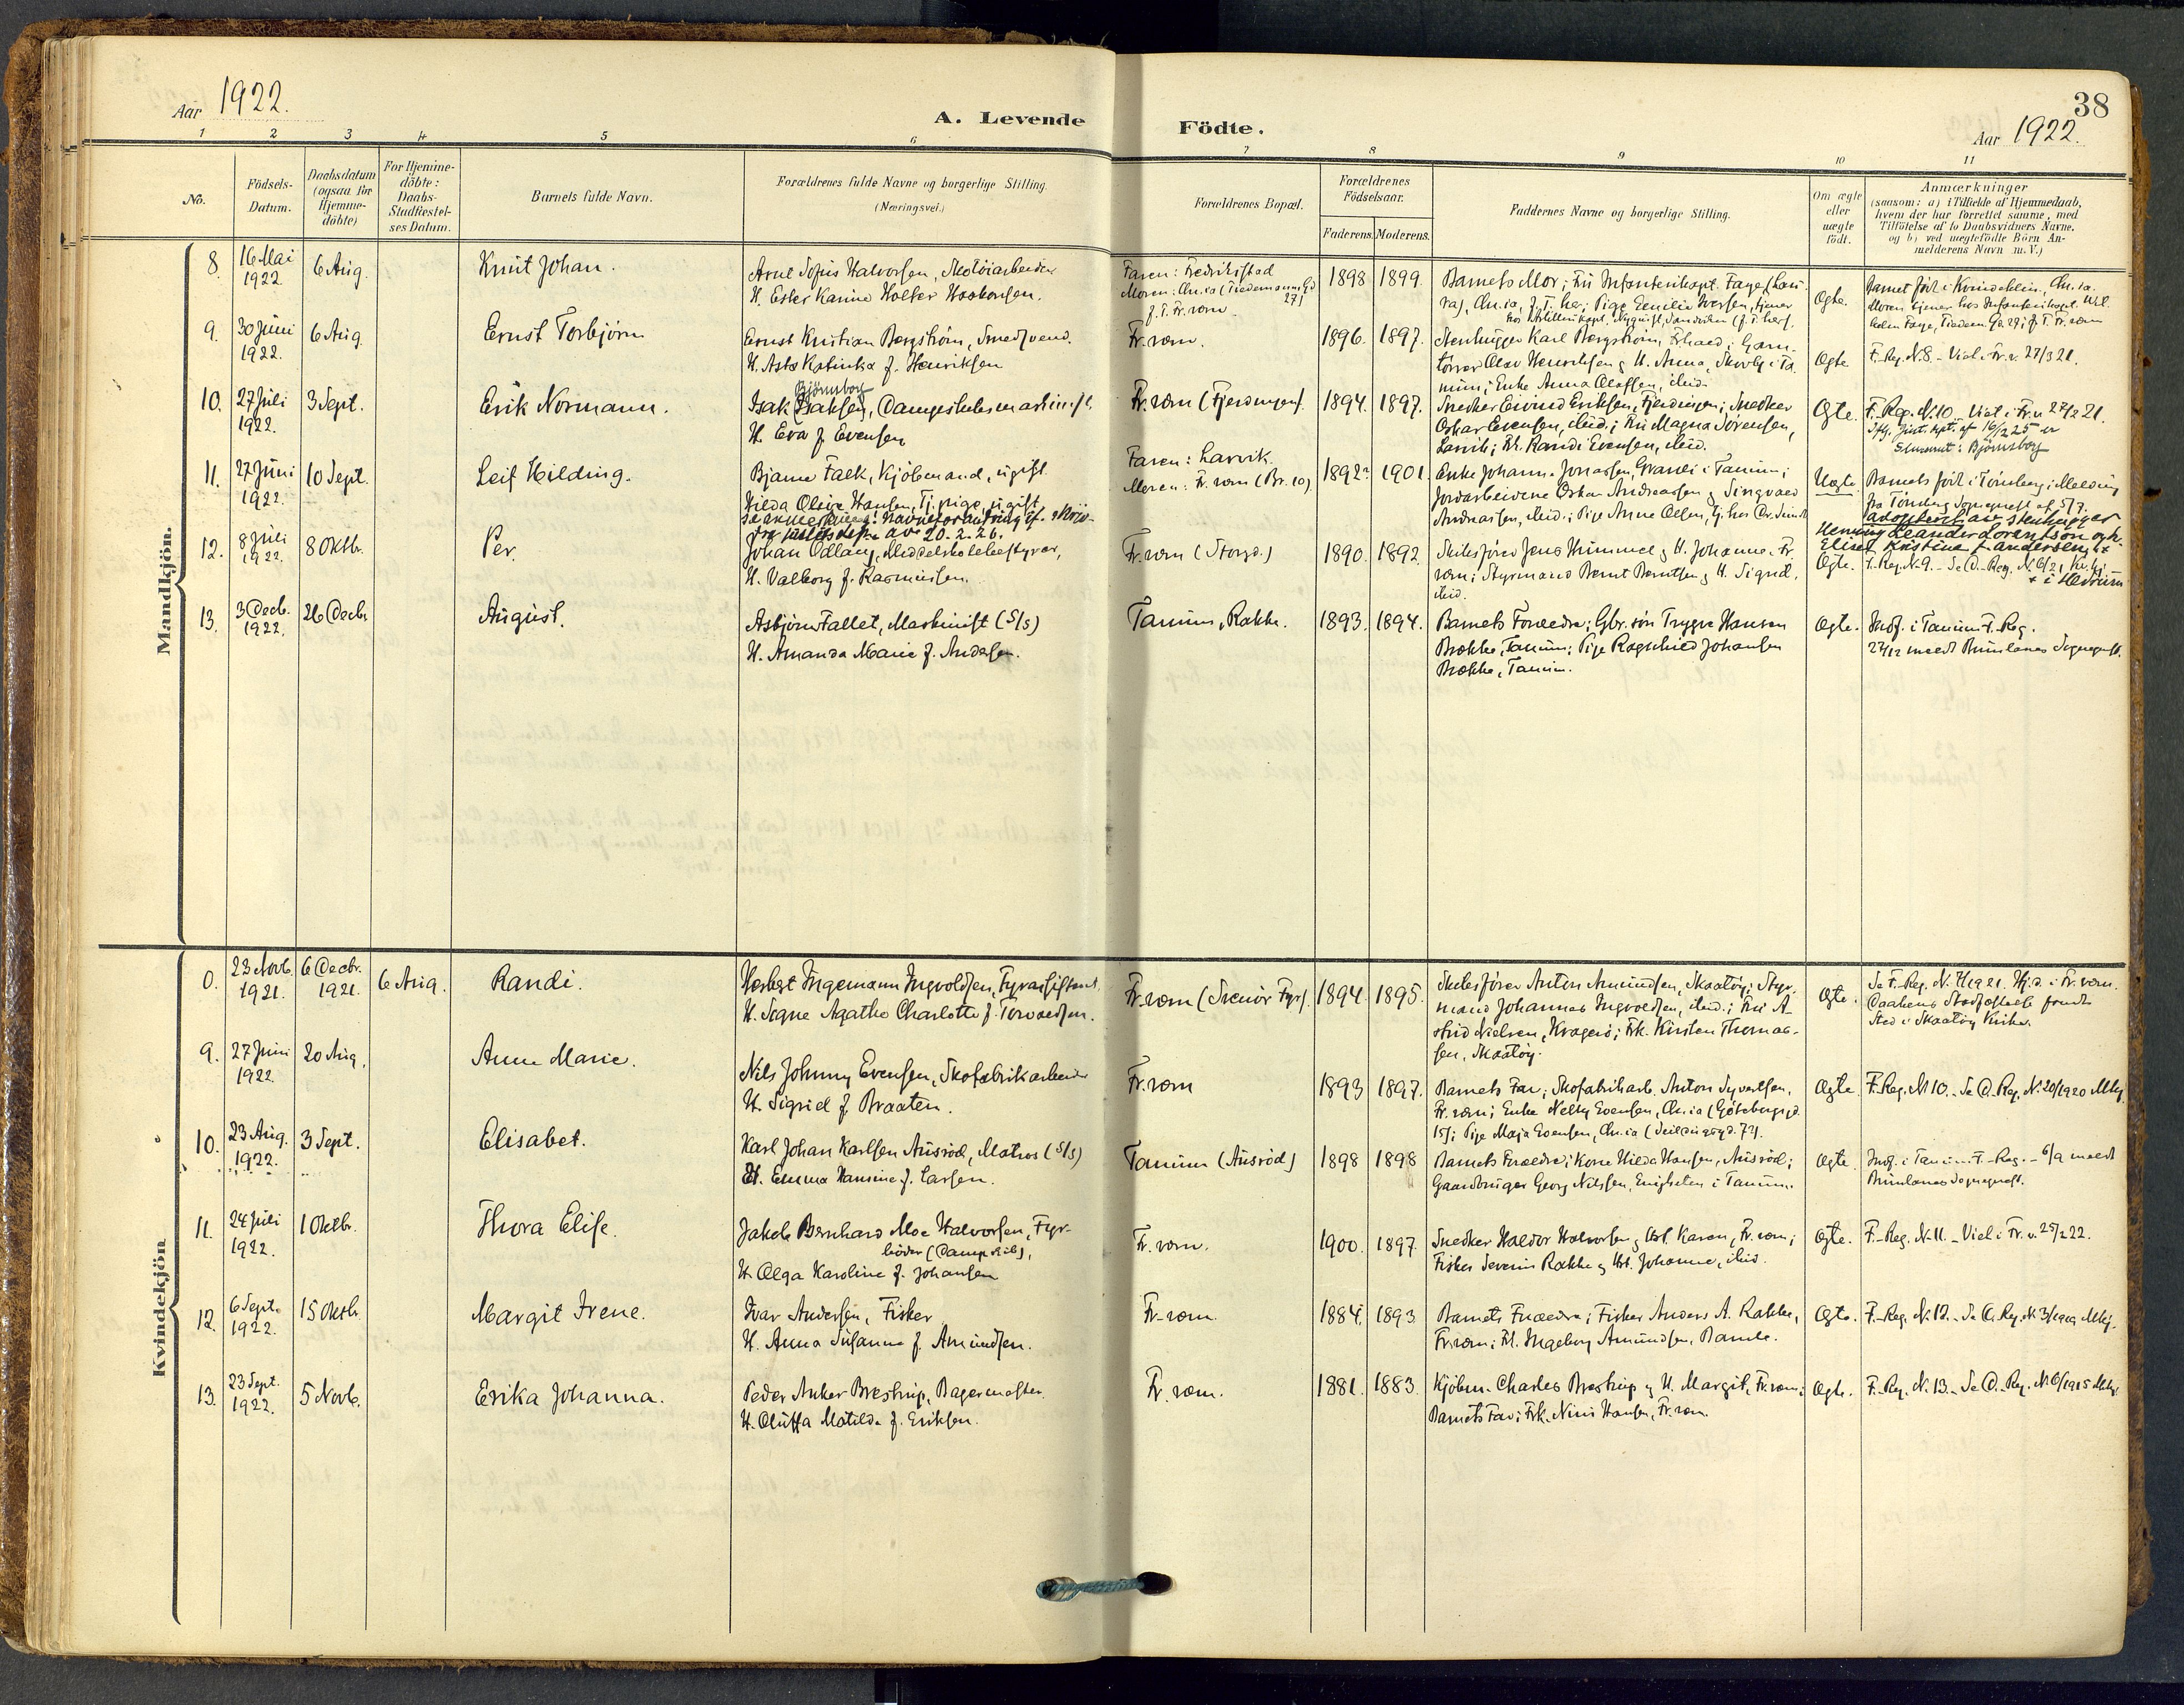 38
Aar 1922.
A. Levende Födte.
Aar 1922.
1 2 3 4 5 6 7 8 9 10 11
No.
Födsels-
Datum.
Daabsdatum
(ogsaa for
Hjemme-
döbte)
For Hjemme-
döbte:
Daabs-
Stadfæstel-
ses Datum.
Barnets fulde Navn.
Forældrenes fulde Navne og borgerlige Stilling.
(Næringsvei.)
Forældrenes Bopæl.
Forældrenes
Födselsaar.
Faderens. Moderens.
Faddernes Navne og borgerlige Stilling.
Om ægte
eller
uægte
födt.
Anmærkninger
(saasom: a) i Tilfælde af Hjemmedaab,
hvem der har forrettet samme, med
Tilföielse af to Daabsvidners Navne,
og b) ved uægtefödte Börn An-
melderens Navn m. V.)
Mandkjön.
8. 16 Mai
1922. 6 Aug. Knut Johan.
Arne Sofus Halvorsen, Skotöiarbeider
H. Ester Karine Holter Haakonsen.
Faren: Fredrikstad
Moren: Chr.ia (Tiedemannsgd
27)
f. T. Fr.værn.
1898 1899.
Barnets Mor; Fru Infanterikapt. Faye (Lau-
Ægte.
9. 30 Juni
1922. 6 Aug. Ernst Torbjörn
Ernst Kristian Bergström, Smedsvend.
H. Asta Katinka f. Henriksen
Fr.værn. 1896. 1897.
Stenhugger Karl Bergström,
Ægte. F.-Reg. N. 8. - Viet i Fr.v. 27/3 21.
10. 27 Juli
1922. 3 Sept. Erik Normann.
Björnsborg
Isak Isaksen,
H. Eva f. Evensen
Fr.værn (Fjerdingen). 1894. 1897.
Snedker Eivind Eriksen, Fjerdingen; Snedker
Oskar Evensen, ibid.; Fru Magna Sörensen,
Larvik; Fr. Randi Evensen, ibid.
Ægte. F.-Reg. N. 10. Viet i Fr.v. 27/2 21.
Iflg. Just.dpt. af 16/2 25 er
Slutnavnet: Björnsborg
11. 27 Juni
1922. 10 Sept. Leif Hilding.
Bjarne Falk, Kjöbmand, ugift.
Hilda Olivia Hansen, Tj.pige, ugift
Faren: Larvik.
Moren: Fr.værn (Br. 10).
1892? 1901.
Enke Johanne Jonassen, Grandi i Tanum;
Jordarbeiderne Oskar Andreassen og Singvard
Andreassen, ibid.; Pige Anne Olsen,
Uægte. Barnets födt i Tönsberg; Melding
fra Tönsberg Sogneprest af 5/7.
adoptert av stenhugger
Henning Leander Lorentson og h.
Elise Kristine f. Andersen, +
+ i Hedrum
12. 8 Juli
1922. 8 Oktb. Per.
Johan Ödlaug, Middelskolebestyrer,
H. Valborg f. Rasmussen.
Fr.værn (Storgd.) 1890. 1892.
Skibsförer Jens Himmel og H. Johanne, Fr.
værn; Styrmand Bernt Berntsen og H. Sigrid,
ibid.
Ægte.
13. 3 Decb.
1922. 26 Decbr August.
Asbjörn Fallet, Maskinist (S/s)
H. Amanda Marie f. Andersen.
Tanum, Rakke. 1893. 1894.
Barnets Forældre; Gbr. sön Trygve Hansen
Brekke, Tanum; Pige Ragnhild Johansen
Brekke, Tanum.
Ægte. Indf. i Tanum F.-Reg.
27/12 meldt Brunlanes Sogneprest.
Kvindekjön
0. 23 Novb.
1921. 6 Decbr.
1921. 6 Aug. Randi.
Herbert Ingemann Ingvoldsen, Fyrassistent
H. Signe Agathe Charlotte f. Torvaldsen.
Fr.værn (Svenör Fyr). 1894. 1895.
Skibsförer Anton Amundsen, Skaatöy; Styr-
mand Johannes Ingvoldsen, ibid.; Fru A-
strid Nielsen, Kragerö; Frk. Kirsten Thomas-
sen, Skaatöy.
Ægte. Se F.-Reg. N. 11 1921. Hj.d. i Fr.værn.
Daabens Stadfæstelse fandt
Sted i Skaatöy Kirke.
9. 27 Juni
1922. 20 Aug. Anne Marie.
Nils Johnny Evensen, Skofabrikarbeider
H. Sigrid f. Braaten.
Fr.værn 1893 1897.
Barnets Far; Skofabrikarb. Anton Syvertsen,
Fr.værn; Enke Nelly Evensen, Chr.ia (Göteborggd.
15); Pige Maja Evensen, Chr.ia (Seilduksgd. 72).
Ægte F.-Reg. N. 10. - Se D.-Reg. N. 20/1920 Mkj.
10. 23 Aug.
1922. 3 Sept. Elisabet.
Karl Johan Karlsen Ausröd, Matros (S/s)
H. Emma Hansine f. Larsen.
Tanum (Ausröd) 1898 1898
Barnets Forældre; Kone Hilda Hansen, Ausröd;
Gaardbruger Georg Nilsen, Enigheten i Tanum.
Ægte. Indf. i Tanum F.-Reg. - 6/9 meldt
Brunlanes Sogneprest.
11. 24 Juli
1922. 1 Oktbr. Thora Elise.
Jakob Bernhard Moe Halvorsen, Fyr-
böder (Dampskib),
H. Olga Karoline f. Johansen
Fr.værn. 1900. 1897.
Snedker Haldor Halvorsen og Hst. Karen, Fr.værn;
Fisker Severin Rakke og Hst. Johanne, ibid.
Ægte. F.-Reg. N. 11. - Viet i Fr.v. 25/2 22.
12. 6 Sept.
1922. 15 Oktb Margit Irene.
Ivar Andersen, Fisker
H. Anna Susanne f. Amundsen.
Fr.værn. 1884. 1893
Barnets Forældre; Fisker Anders A. Rakke,
Fr.værn; Fr. Ingeborg Amundsen, Bamle.
Ægte. F.-Reg. N. 12. - Se D.-Reg. N. 3/1919 Mkj.
13. 23 Sept.
1922. 5 Novb. Erika Johanna.
Peder Anker Brestrup, Bagermester.
H. Oluffa Matilde f. Eriksen.
Fr.værn. 1881. 1883.
Kjöbm. Charles Brestrup og H. Margit, Fr.værn;
Barnets Far; Frk. Nini Hansen, Fr.værn.
Ægte. F.-Reg. N. 13. - Se D.-Reg. N. 6/1915 Mkj.